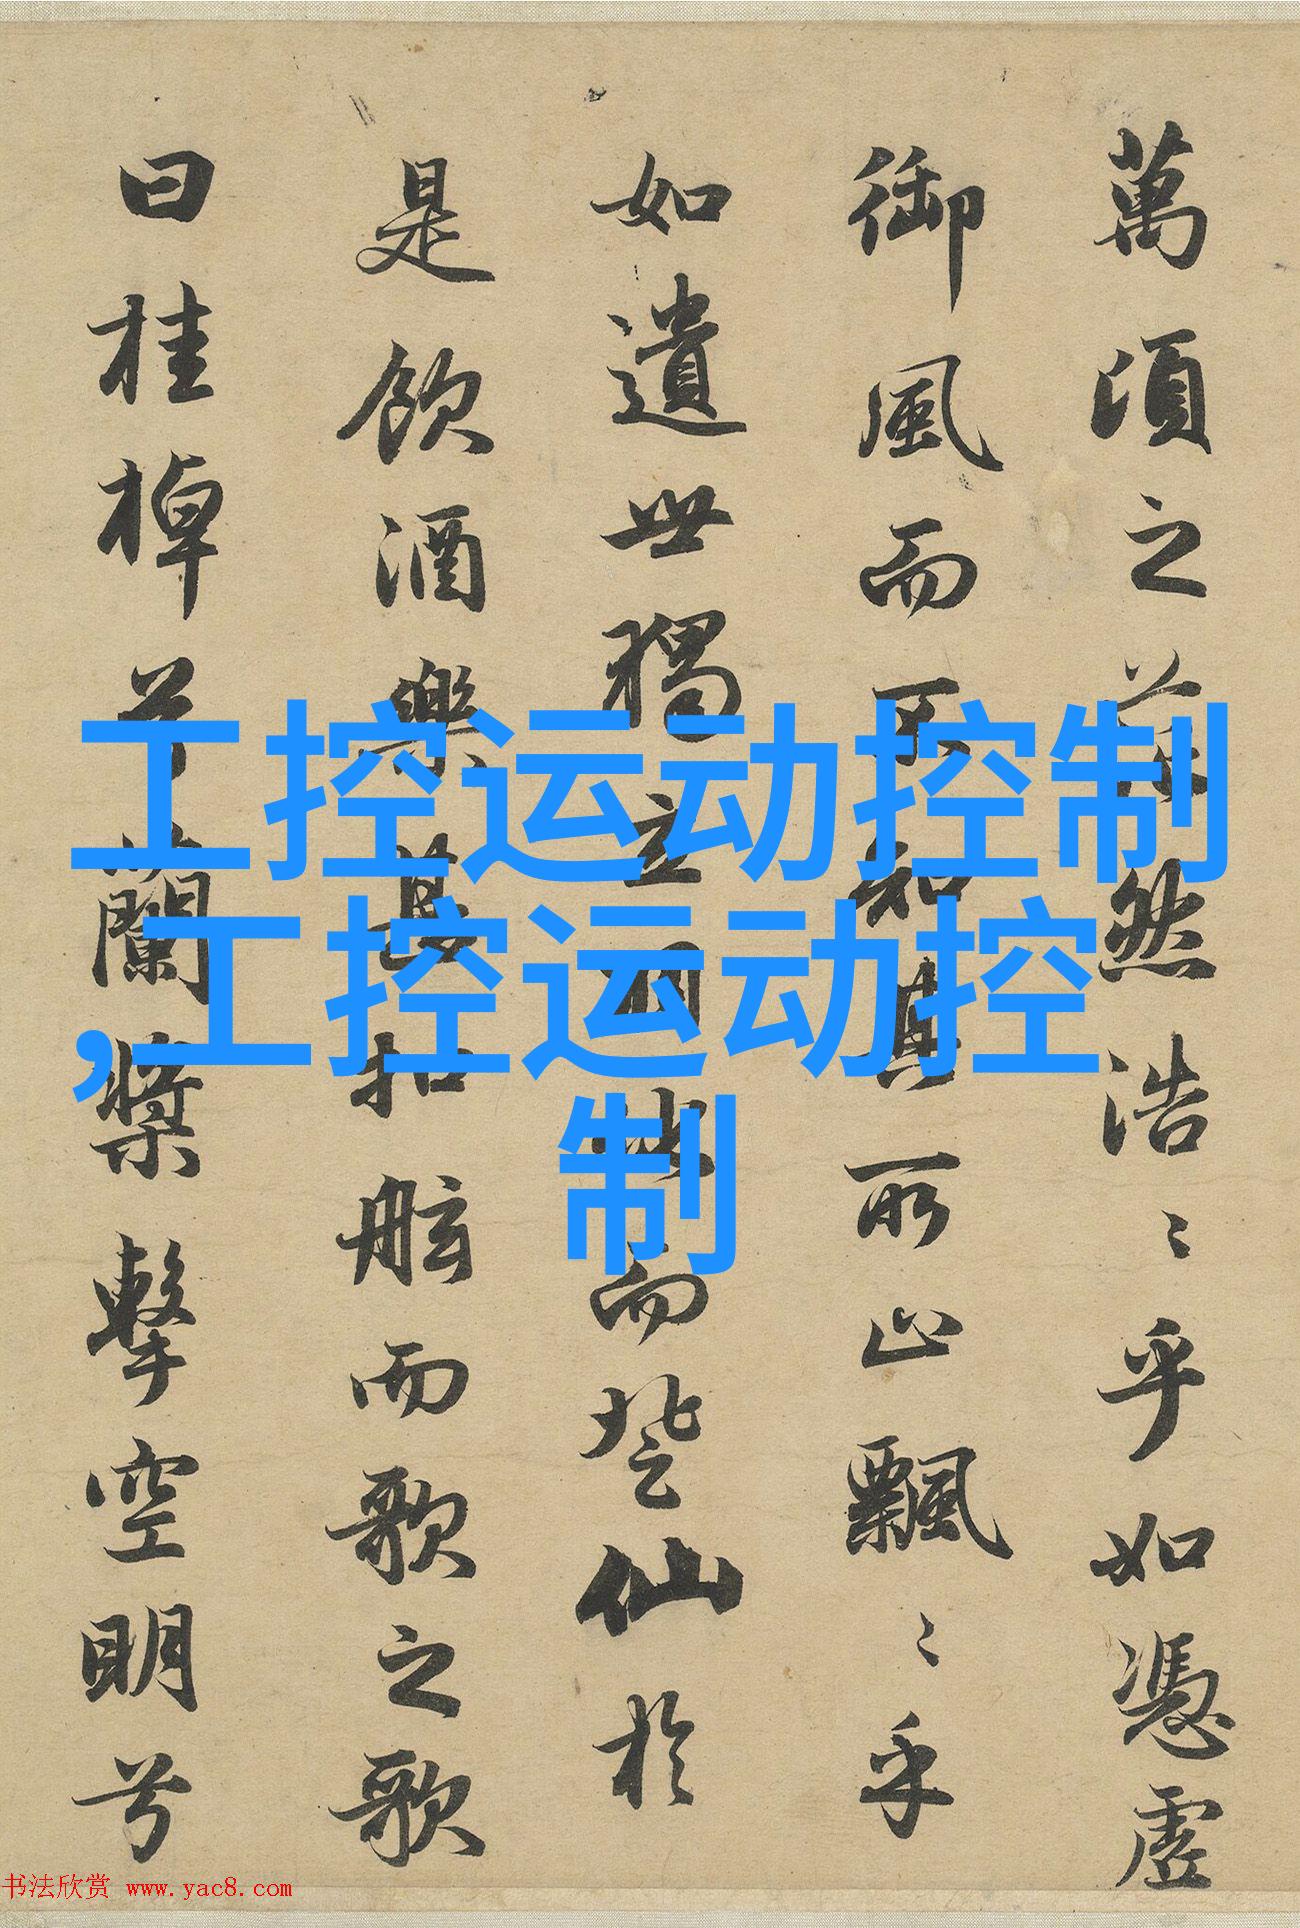 萬頃之茫然浩〻乎如憑虛
御風而不知其所止飄〻乎
如遺世獨立羽化而登仙於
是飲酒樂甚扣舷而歌之歌
曰桂棹兮蘭槳擊空明兮
工控运动控制
,工控运动控
制
书法欣赏 www.yac8.com